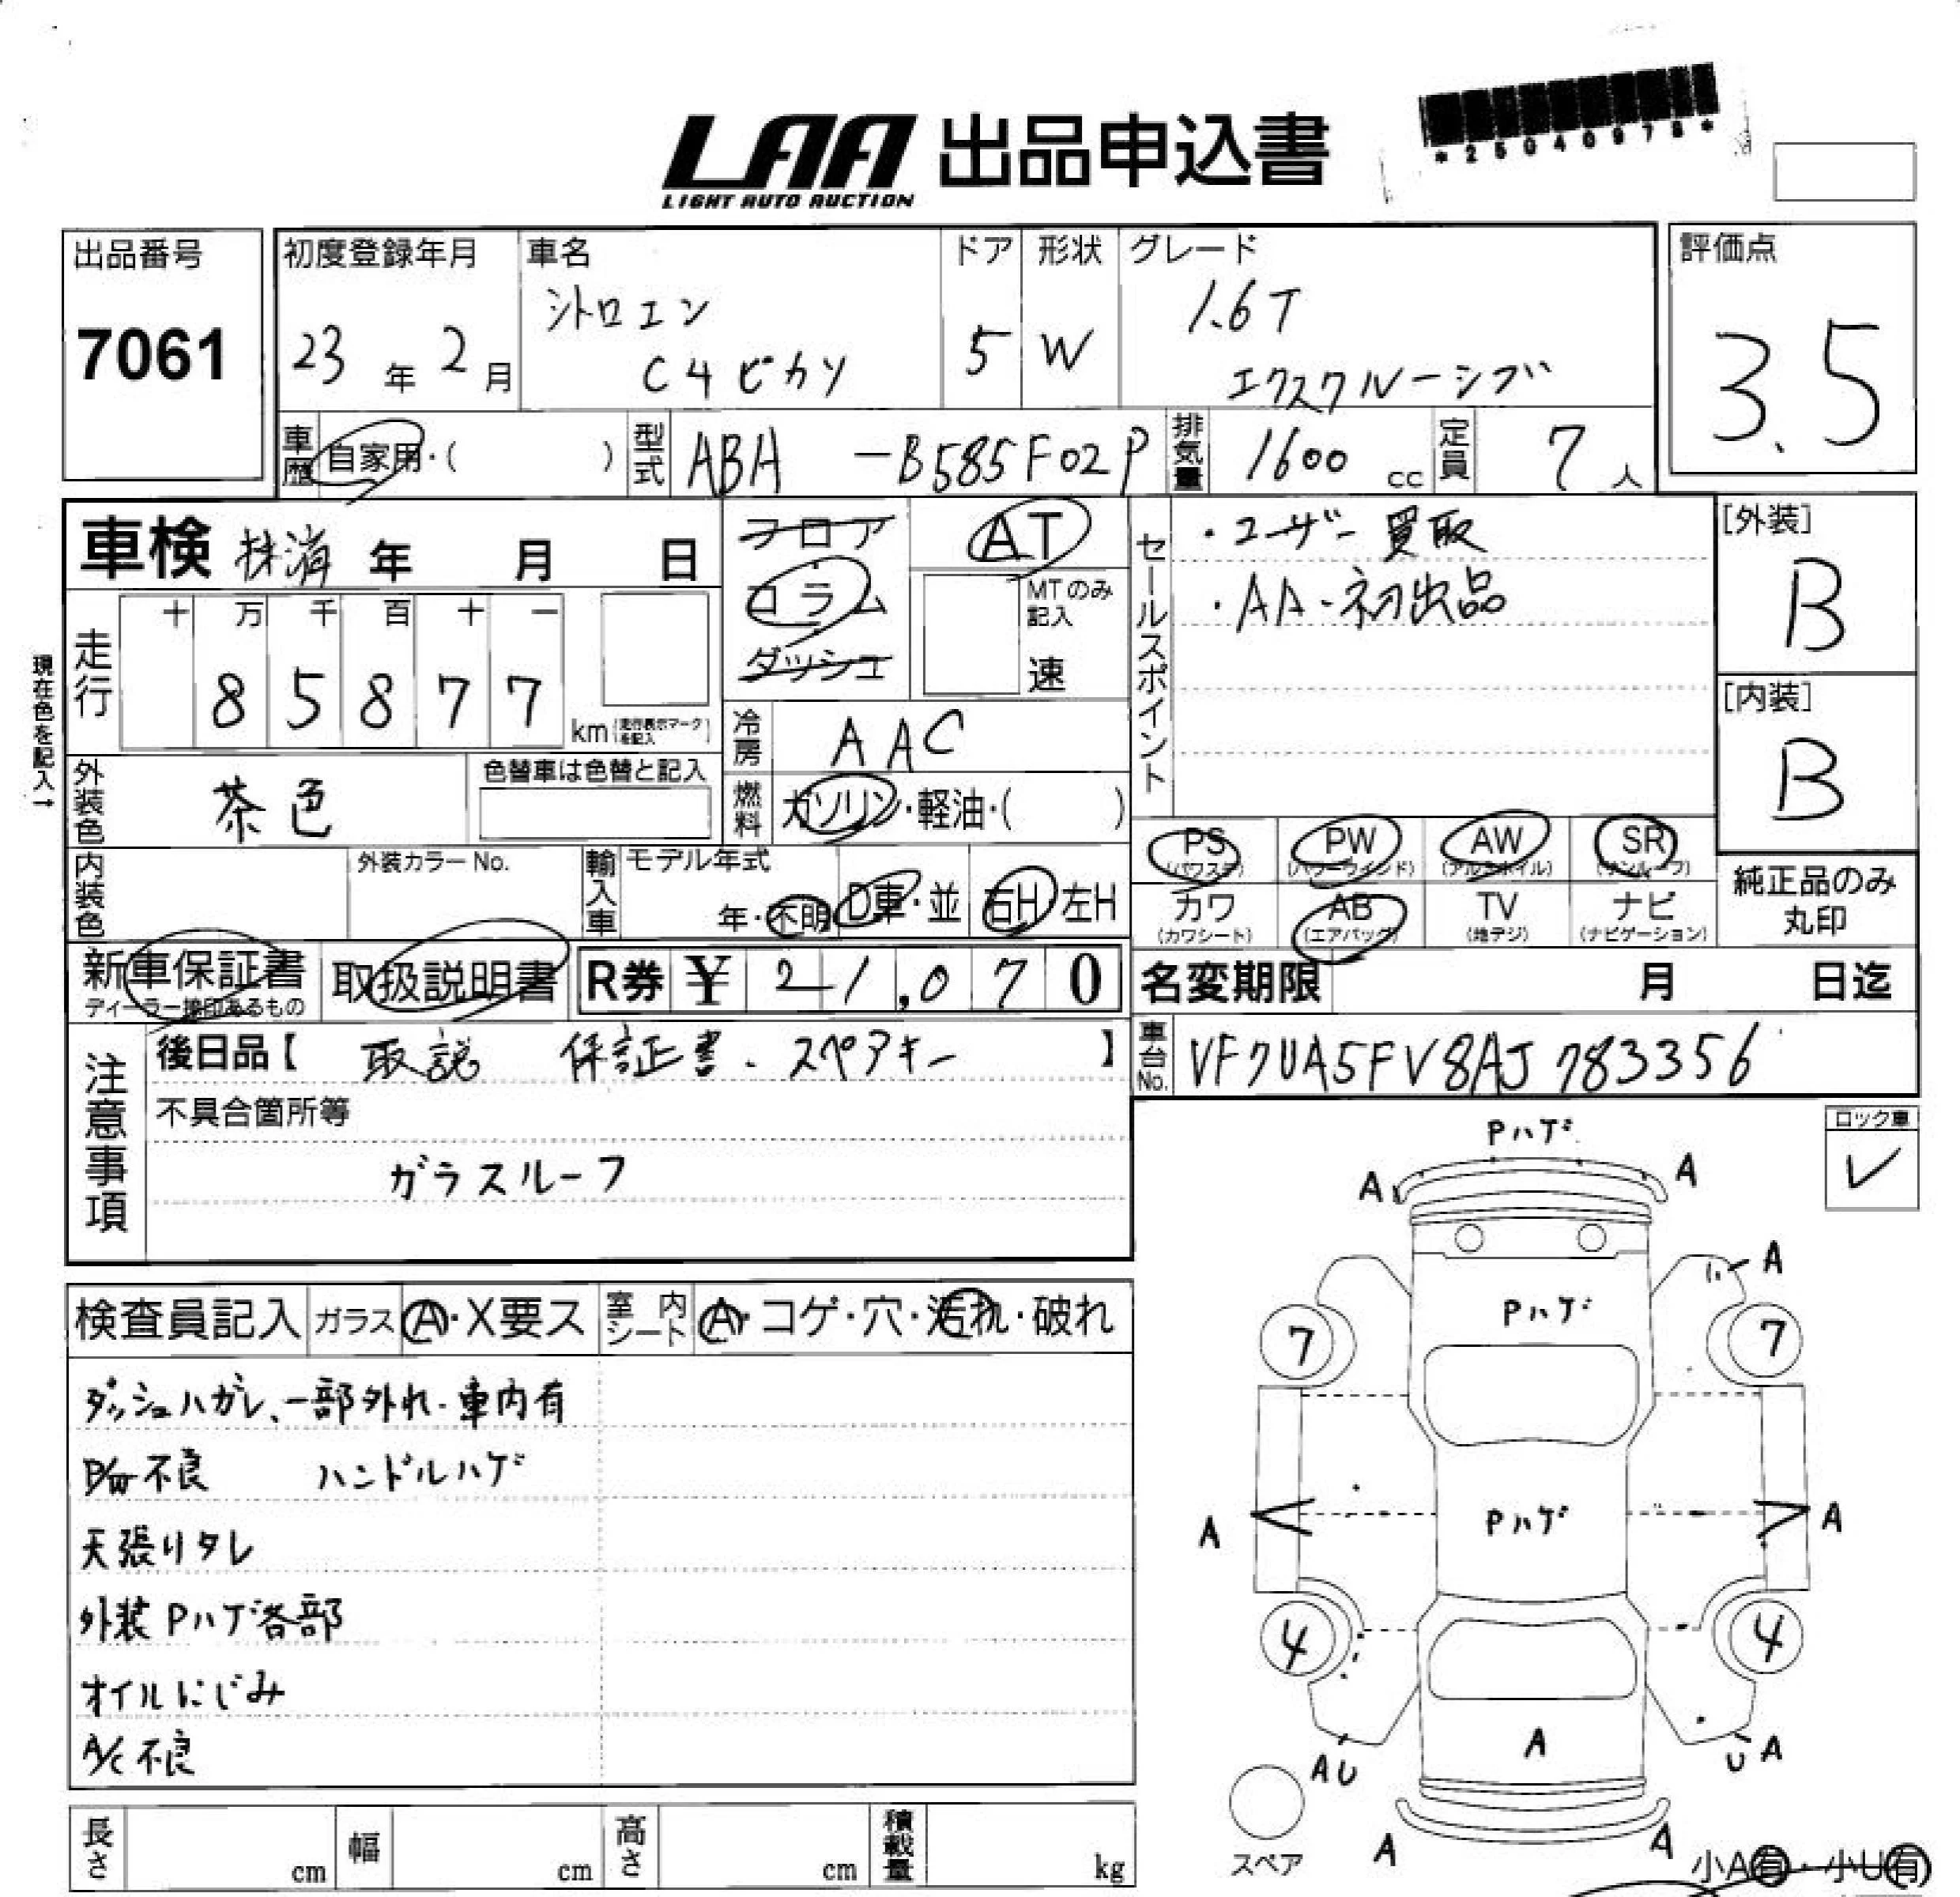 LAA 出品申込書
LIGHT AUTO AUCTION
*25040978*
出品番号
7061
初度登録年月
23年 2月
車名
シトロエン
C4ピカソ
ドア
5
形状
W
グレード
1.6T
エクスクルーシブ
評価点
3.5
車歴 自家用・( )
型式 ABA -B585F02P
排気量 1600 cc
定員 7 人
車検 抹消 年 月 日
フロア
コラム
ダッシュ
AT
MTのみ記入
速
セールスポイント
・ユーザー買取
・AA・初出品
[外装]
B
[内装]
B
現在色を記入→
走行
十 万 千 百 十 一
8 5 8 7 7
km (走行表示マークを記入)
冷房 AAC
外装色 茶色
色替車は色替と記入
燃料 ガソリン・軽油・( )
内装色
外装カラーNo.
輸入車
モデル年式
年・不明
D車・並
右H 左H
PS (パワステ)
PW (パワーウインド)
AW (アルミホイル)
SR (サンルーフ)
カワ (カワシート)
AB (エアバッグ)
TV (地デジ)
ナビ (ナビゲーション)
純正品のみ
丸印
新車保証書
ディーラー捺印あるもの
取扱説明書
R券 ¥ 21,070
名変期限 月 日迄
注意事項
後日品【 取説 保証書・スペアキー 】
車台No. VF7UA5FV8AJ783356
不具合箇所等
ガラスルーフ
ロック車
✓
検査員記入
ガラス A・X要ス
室内シート A・コゲ・穴・汚れ・破れ
ダッシュハガレ、一部外れ・車内有
P/W不良 ハンドルハゲ
天張りタレ
外装Pハゲ各部
オイルにじみ
A/C不良
Pハゲ
A A
A
Pハゲ
7 7
Pハゲ
A A
4 4
A
AU
UA
スペア
A A
小A有・小U有
長さ cm
幅 cm
高さ cm
積載量 kg